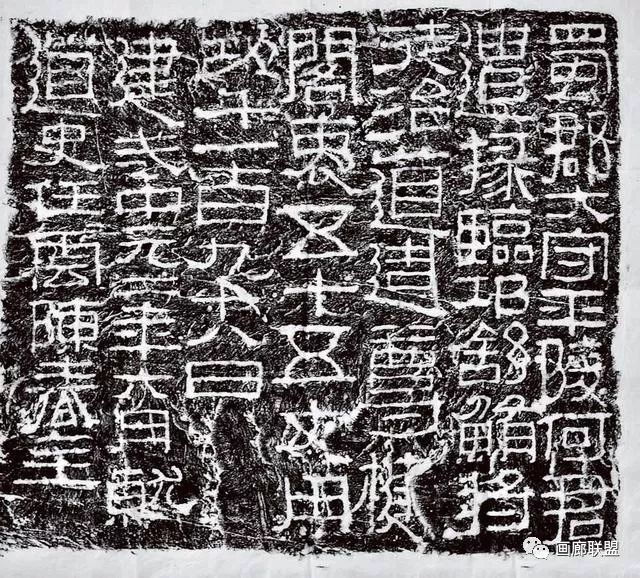 蜀郡大守平陵何君
遣掾臨邛舒鮪將
徒治道造尊楗
閣袤五十五丈用
功千一百九十八日
建武中元二年六月就
道史任雲陳春主
画廊联盟